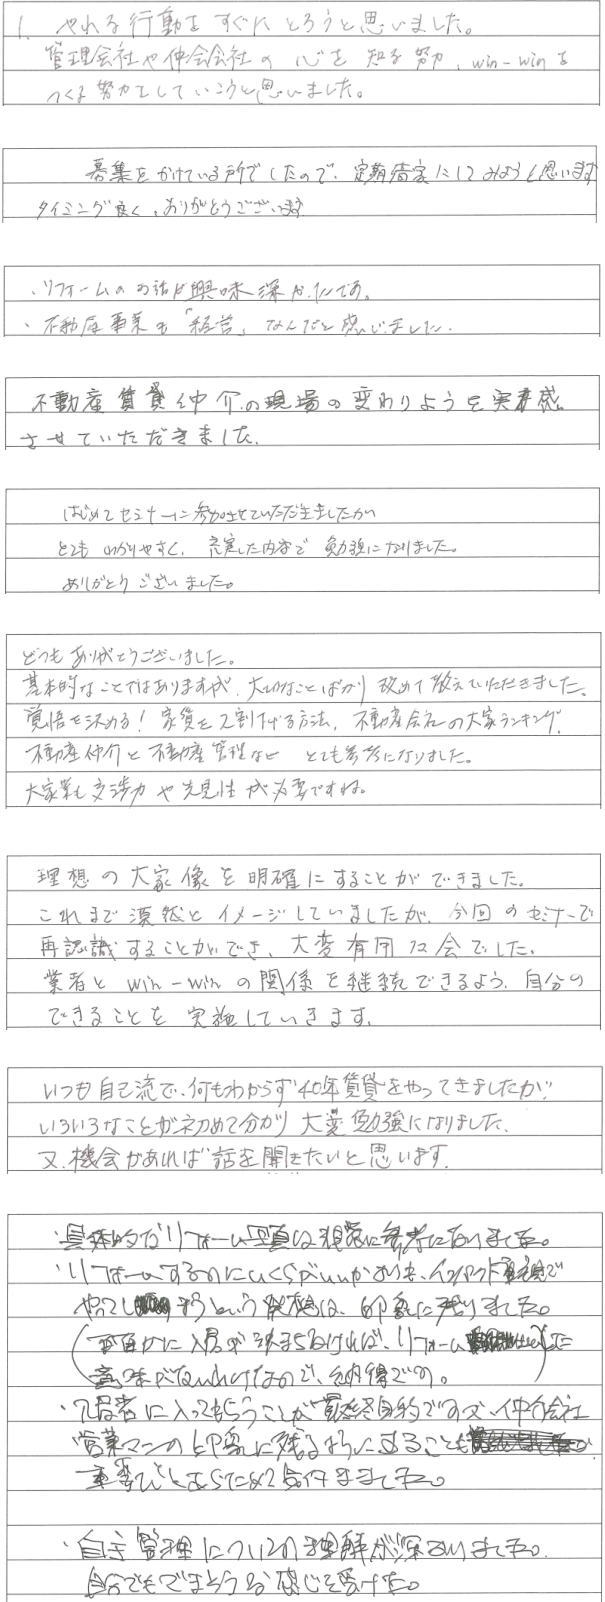 1. やれる行動をすぐにとろうと思いました。
管理会社や仲介会社の心を知る努力、win-winを
つくる努力をしていこうと思いました。
募集をかけている所でしたので、定期借家にしてみようと思います
タイミング良く、ありがとうございます
・リフォームのお話が興味深かったです。
・不動産事業も「経営」なんだと感じました.
不動産賃貸仲介の現場の変わりようを実感
させていただきました.
はじめてセミナーに参加させていただきましたが
とても わかりやすく、充実した内容で 勉強になりました。
ありがとうございました。
どうもありがとうございました。
基本的なことではありますが、大切なことばかり 改めて教えていただきました。
覚悟を決める!家賃を2割下げる方法、不動産会社の大家ランキング、
不動産仲介と不動産管理など とても参考になりました。
大家業も交渉力や先見性が必要ですね。
理想の大家像を明確にすることができました。
これまで漠然とイメージしていましたが、今回のセミナーで
再認識することができ、大変有用な会でした。
業者と win-win の関係を継続できるよう、自分の
できることを実施していきます.
いつも自己流で、何もわからず40年賃貸をやってきましたが
いろいろなことが初めて分かり 大変勉強になりました、
又、機会があれば話を聞きたいと思います.
・具体的なリフォーム写真は非常に参考になりました。
・リフォームするのにいくらがいいかよりも、インパクト重視で
やってしまうという発想は、印象に残りました。
入居が決まらなければ、リフォームした
意味がないわけなので、納得です。
・入居者に入ってもらうことが最終目的ですが、仲介会社
営業マンの印象に残るようにすることも
重要だとあらためて気付きました。
・自主管理についての理解が深まりました。
自分でもできそうな感じを受けた。